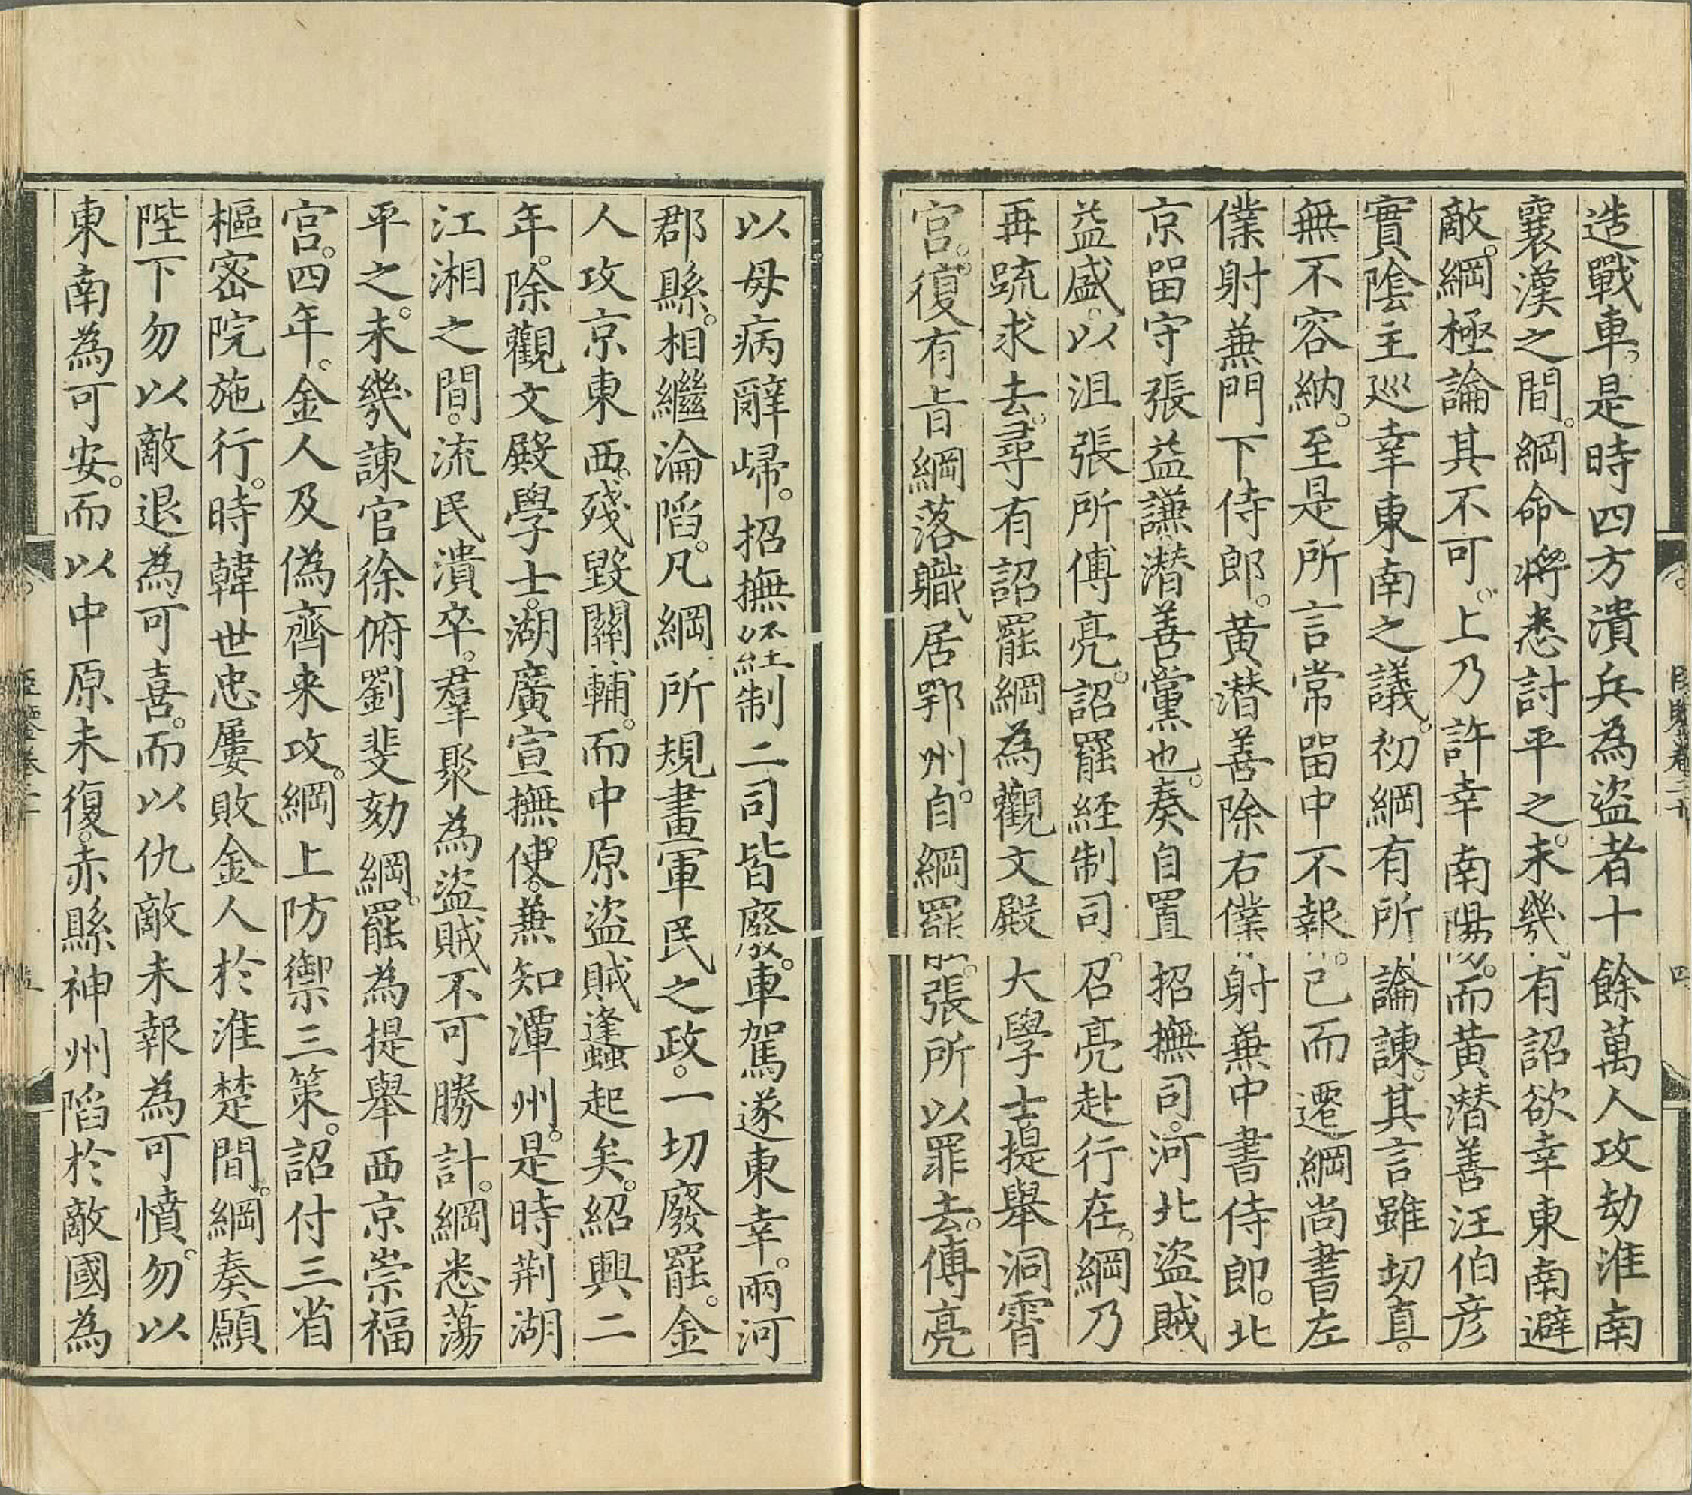 造戰車。是時四方潰兵為盜者十餘萬人攻劫淮南
襄漢之間。綱命將悉討平之。未幾有詔欲幸東南避
敵。綱極論其不可。上乃許幸南陽。而黃潛善汪伯彥
實陰主巡幸東南之議。初綱有所論諫。其言雖切直。
無不容納。至是所言常畱中不報。已而遷綱尚書左
僕射兼門下侍郎。黃潛善除右僕射兼中書侍郎。北
京畱守張益謙潛善黨也。奏自置招撫司。河北盜賊
益盛。以沮張所傅亮。詔罷經制司。召亮赴行在。綱乃
再疏求去。尋有詔罷綱為觀文殿大學士提舉洞霄
宮。復有旨綱落職居鄂州。自綱罷。張所以罪去。傅亮
以母病辭歸。招撫経制二司皆廢。車駕遂東幸。兩河
郡縣。相繼淪陷。凡綱所規畫軍民之政。一切廢罷。金
人攻京東西。殘毀關輔。而中原盜賊蠭起矣。紹興二
年。除觀文殿學士。湖廣宣撫。使。兼知潭州。是時荆湖
江湘之間。流民潰卒。羣聚為盜賊不可勝計。綱悉蕩
平之。未幾諫官徐俯劉斐劾綱。罷為提舉西京崇福
宮。四年。金人及偽齊来攻。綱上防禦三策。詔付三省
樞密院施行。時韓世忠屢敗金人於淮楚間。綱奏願
陛下勿以敵退為可喜。而以仇敵未報為可憤。勿以
東南為可安。而以中原未復。赤縣神州陷於敵國為